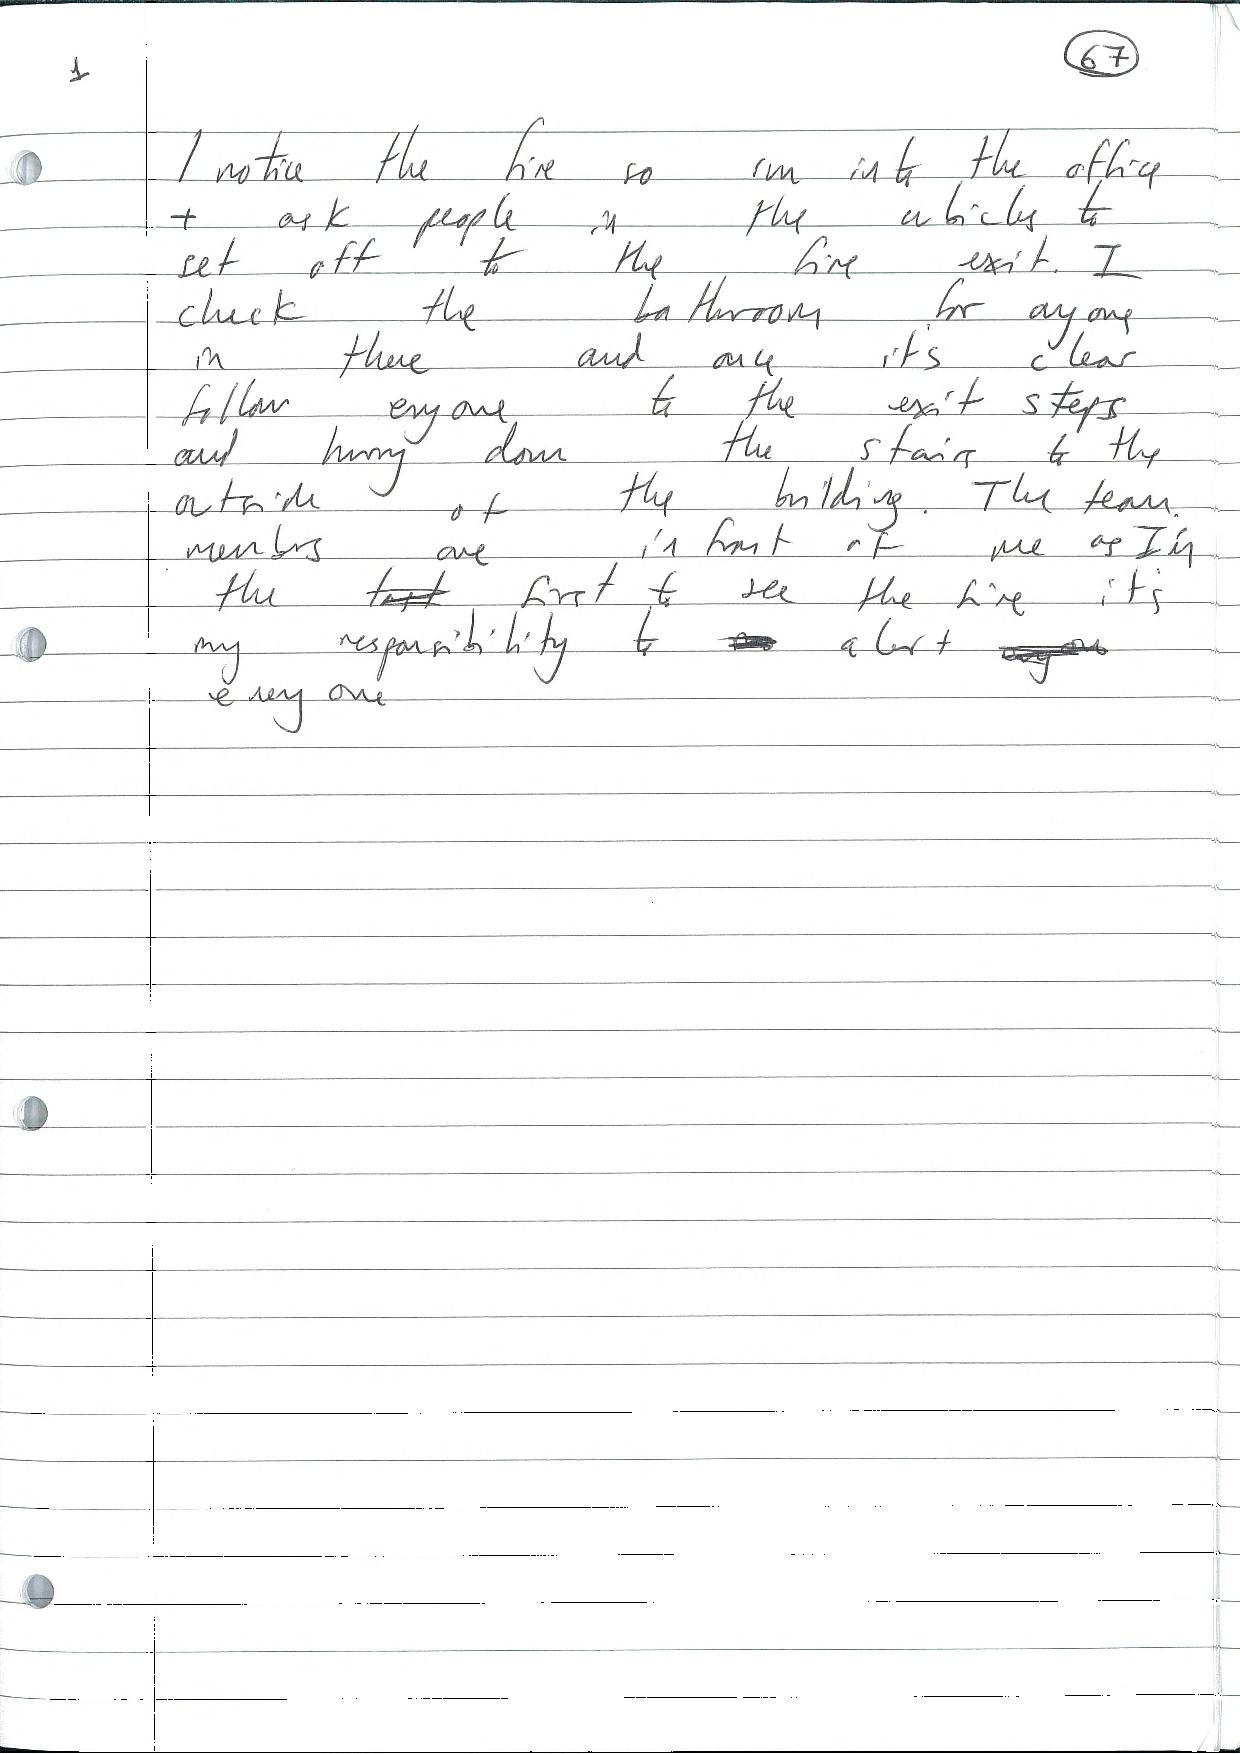 1
67
I notice the fire so run into the office
+ ask people in the cubicles to
set off to the fire exit. I
check the bathroom for anyone
in there and once it's clear
follow eryone to the exit steps
and hurry down the stairs to the
outside of the building. The team
members are in front of me as I'm
the first to see the fire it's
my responsibility to alert
everyone